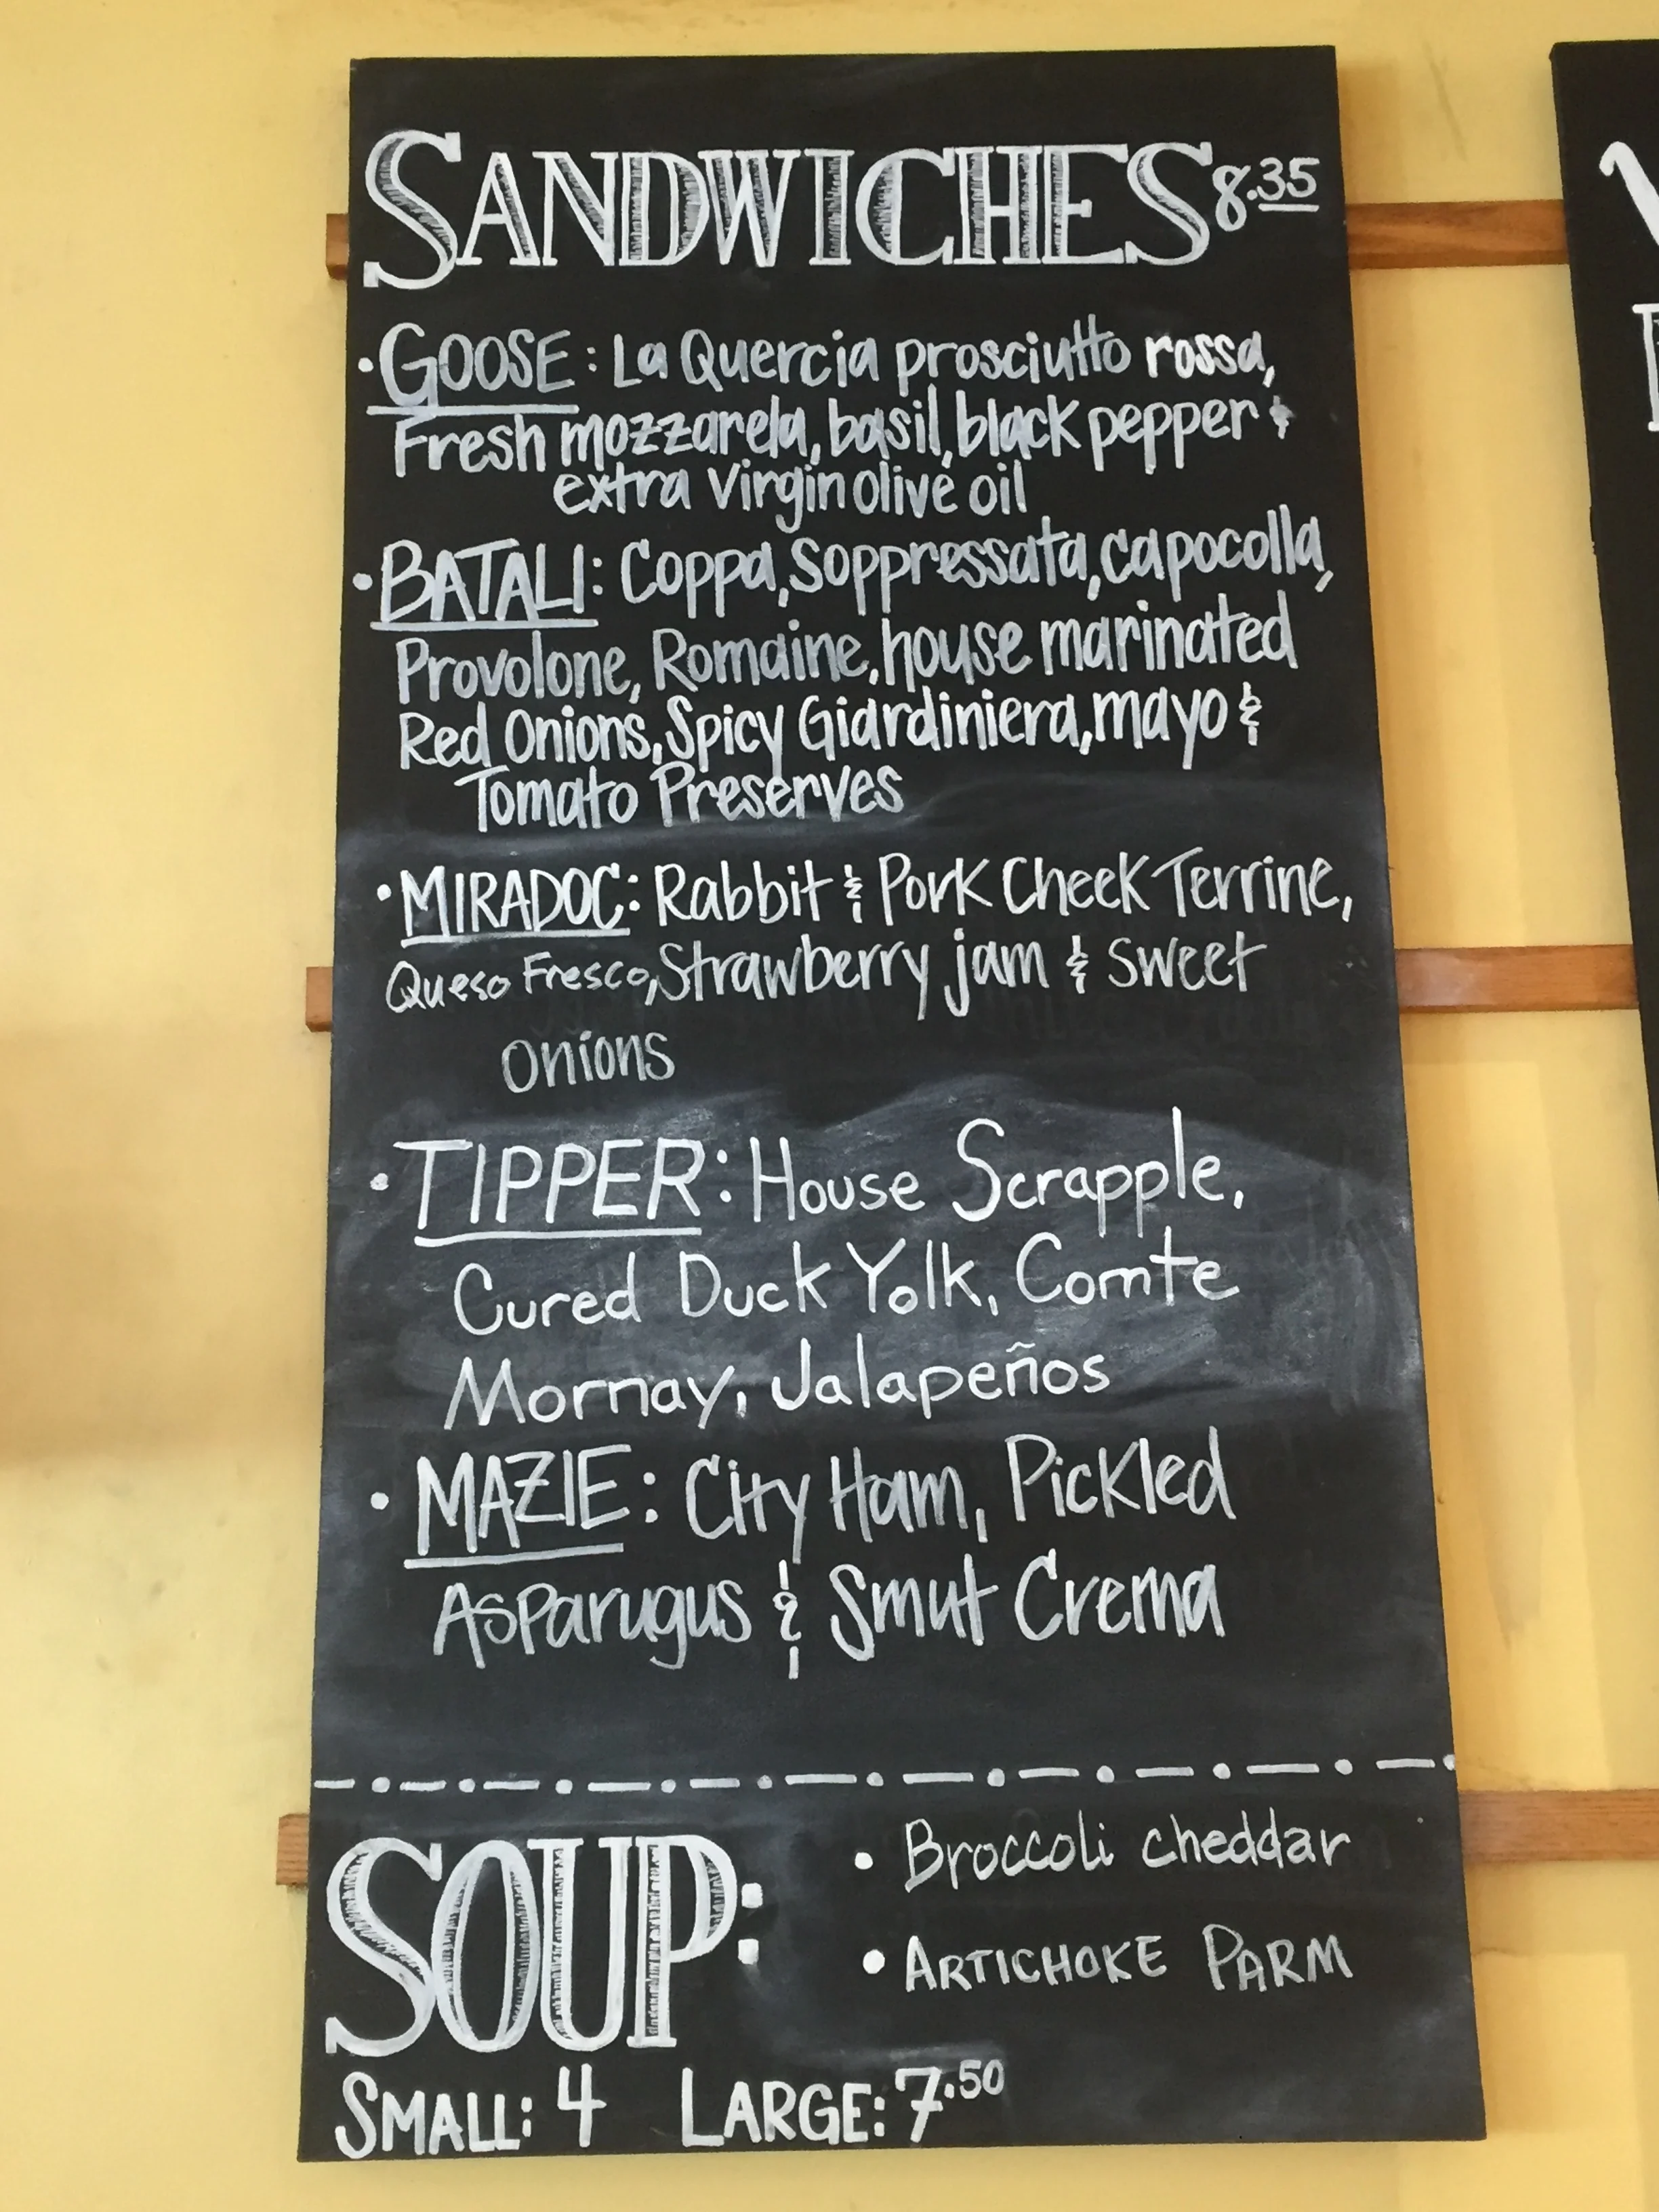 SANDWICHES 8.35
• GOOSE: La Quercia prosciutto rossa,
Fresh mozzarela, basil, black pepper &
extra virgin olive oil
• BATALI: Coppa, Soppressata, capocolla,
Provolone, Romaine, house marinated
Red Onions, Spicy Giardiniera, mayo &
Tomato Preserves
• MIRADOC: Rabbit & Pork Cheek Terrine,
Queso Fresco, Strawberry jam & sweet
onions
• TIPPER: House Scrapple,
Cured Duck Yolk, Comte
Mornay, Jalapeños
• MAZIE: City Ham, Pickled
Asparugus & Smut Crema
SOUP:
• Broccoli cheddar
• ARTICHOKE PARM
SMALL: 4 LARGE: 7.50